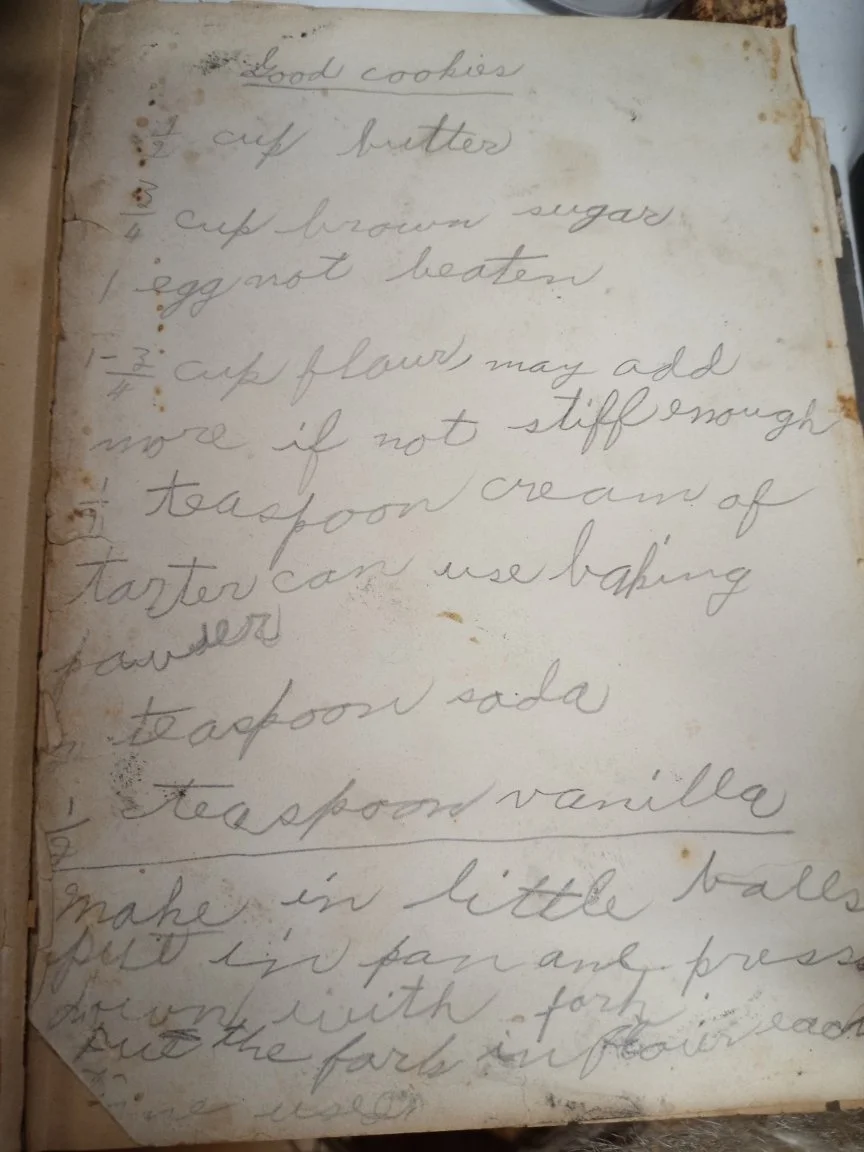 Good cookies
1/2 cup butter
3/4 cup brown sugar
1 egg not beaten
1-3/4 cup flour, may add
more if not stiff enough
teaspoon cream of
tarter can use baking
pauder
teaspoon soda
1/2 teaspoon vanilla
make in little balls
put in pan and press
down with fork.
Put the fork in flour each
time used